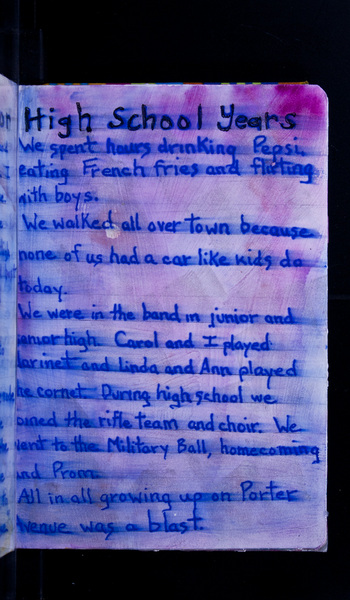 High School Years
We spent hours drinking Pepsi,
eating French fries and flirting
with boys.
We walked all over town because
none of us had a car like kids do
today.
We were in the band in junior and
senior high. Carol and I played
clarinet and linda and Ann played
the cornet. During high school we
joined the rifle team and choir. We
went to the Military Ball, homecoming
and Prom.
All in all growing up on Porter
Avenue was a blast.